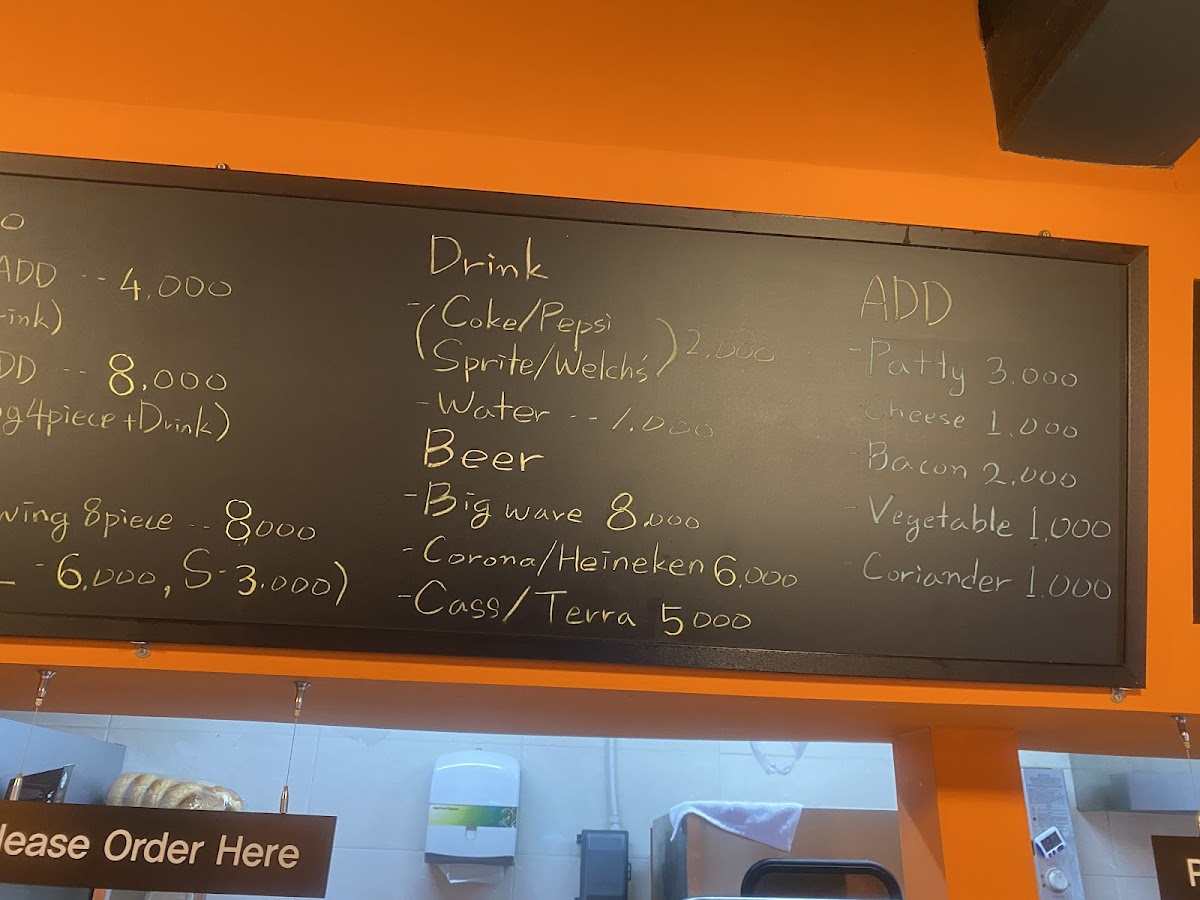 ADD -- 4,000
8,000
4piece + Drink)
wing 8piece -- 8,000
- 6,000, S - 3,000)
Drink
- (Coke/Pepsi
Sprite/Welch's) 2,000
- Water -- 1,000
Beer
- Big wave 8,000
- Corona/Heineken 6,000
- Cass/Terra 5000
ADD
- Patty 3,000
- Cheese 1,000
- Bacon 2,000
- Vegetable 1,000
- Coriander 1,000
lease Order Here